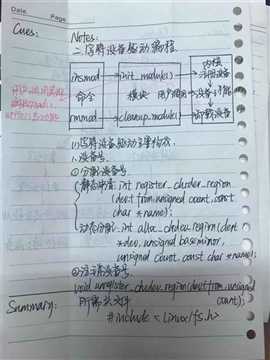 Date
Page
Cues:
Notes:
二.字符设备驱动编程
insmod
命令
rmmod
init_module()
模块
用户调用
cleanup_module()
内核
注册设备
设备子功能
卸载设备
(1)字符设备驱动主要构成
1.设备号
①分配设备号
静态申请: int register_chrdev_region
(dev_t from, unsigned count, const
char *name);
动态分配: int alloc_chrdev_region(dev_t
*dev, unsigned baseminor,
unsigned count, const char *name);
②注销设备号
void unregister_chrdev_region(dev_t from, unsigned
count);
Summary:
所需头文件
#include <Linux/fs.h>